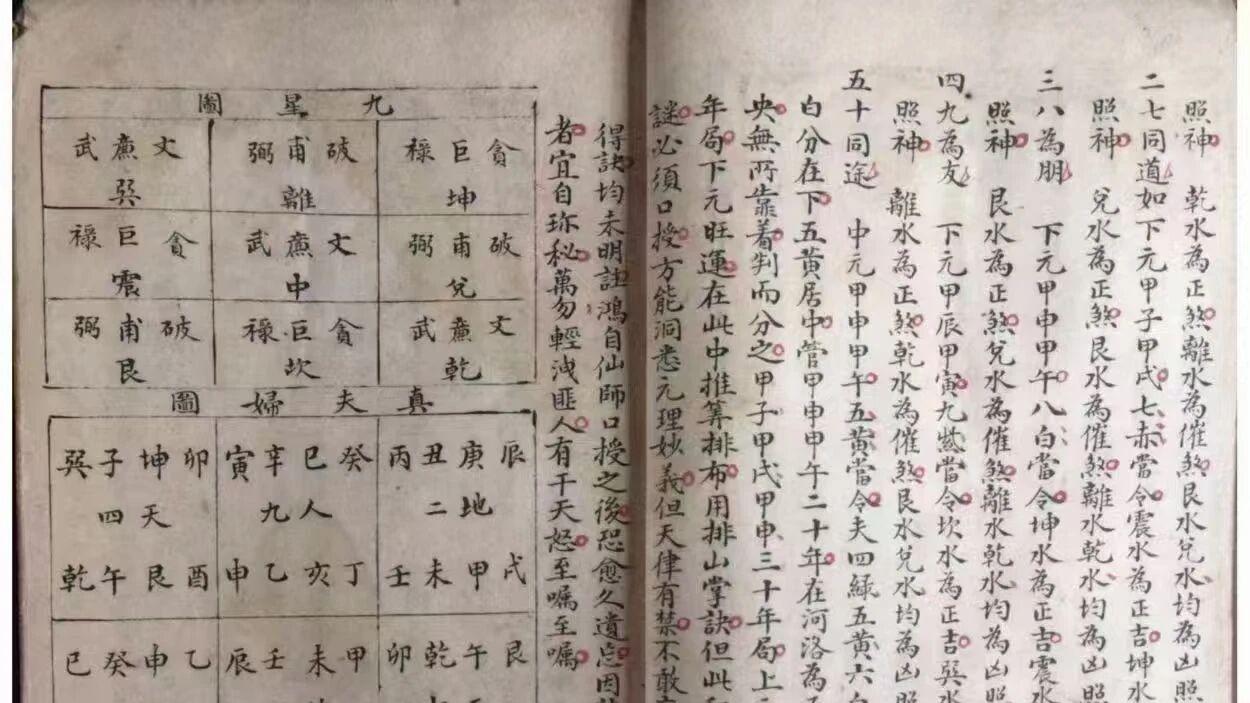 照神 乾水為正煞離水為催煞艮水兌水均為凶照
二七同道如下元甲子甲戌七赤當令震水為正吉坤水
照神 兌水為正煞艮水為催煞離水乾水均為凶照
三八為朋 下元甲申甲午八白當令坤水為正吉震水
照神 艮水為正煞兌水為催煞離水乾水均為凶照
四九為友 下元甲辰甲寅九紫當令坎水為正吉巽水
照神 離水為正煞乾水為催煞艮水兌水均為凶照
五十同途 中元甲申甲午五黃當令夫四綠五黃六白
白分在下五黃居中管甲申甲午二十年在河洛為
央無所靠着判而分之甲子甲戌甲申三十年局上
年局下元旺運在此中推算排布用排山掌訣但此
謎必須口授方能洞悉元理妙義但天律有禁不敢
得訣均未明註鴻自仙師口授之後恐愈久遺忘因
者宜自珍秘萬勿輕洩匪人有干天怒至囑至囑
九星圖
貪巨祿 破甫弼 文廉武
坤 離 巽
破甫弼 文廉武 貪巨祿
兌 中 震
文廉武 貪巨祿 破甫弼
乾 坎 艮
真夫婦圖
辰庚丑丙 癸巳辛寅 卯坤子巽
地二 人九 天四
戌甲未壬 丁亥乙申 酉艮午乾
艮午乾卯 甲未壬辰 乙申癸巳